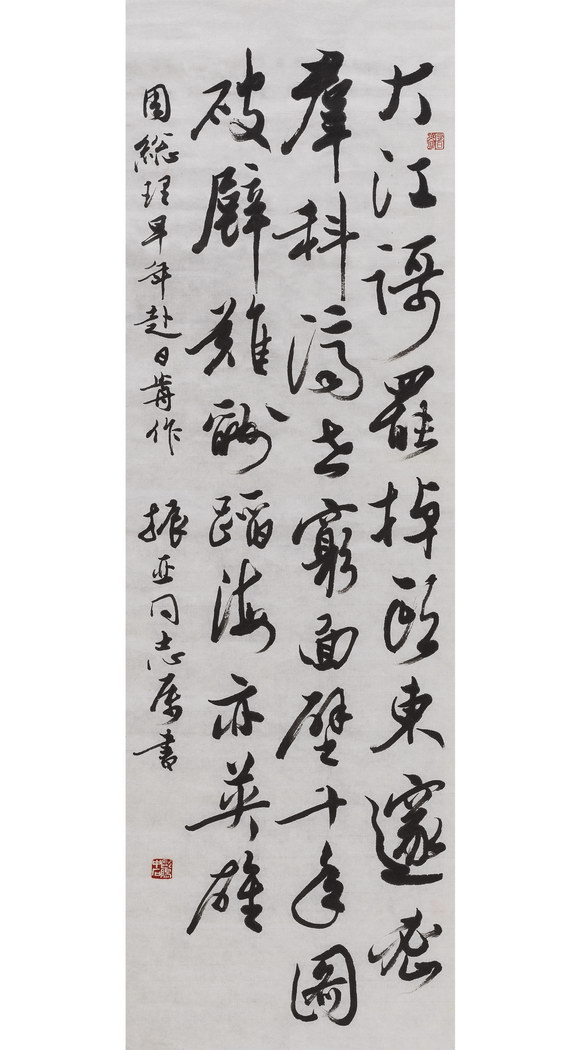 大江謌罷掉頭東邃密
羣科濟世窮面壁十年圖
破壁難酬蹈海亦英雄
周總理早年赴日舊作 振亚同志属書